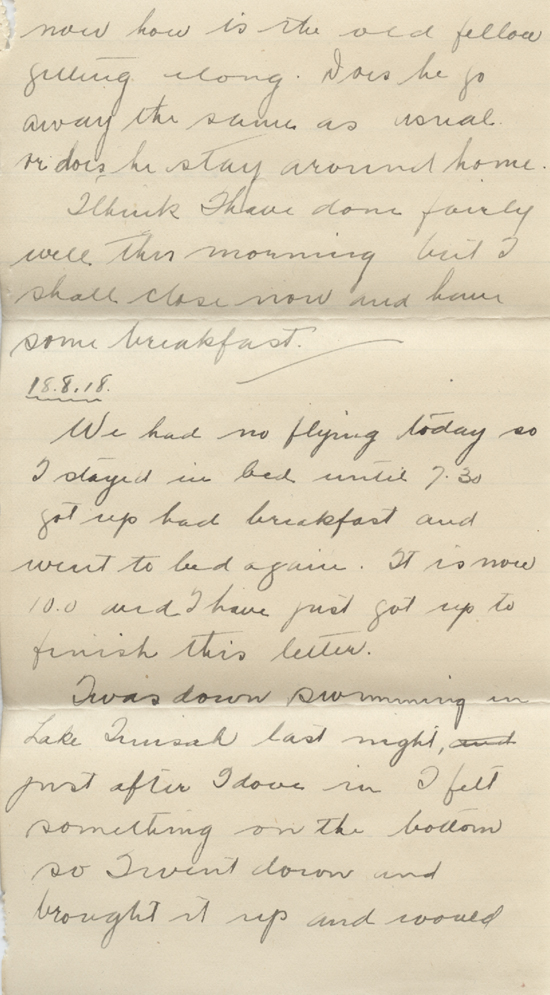 now how is the old fellow
getting along. Does he go
away the same as usual
or does he stay around home.
I think I have done fairly
well this morning but I
shall close now and have
some breakfast.
18.8.18.
We had no flying today so
I stayed in bed until 7.30
got up had breakfast and
went to bed again. It is now
10.0 and I have just got up to
finish this letter.
I was down swimming in
Lake Timsah last night, and
just after I dove in I felt
something on the bottom
so I went down and
brought it up and would